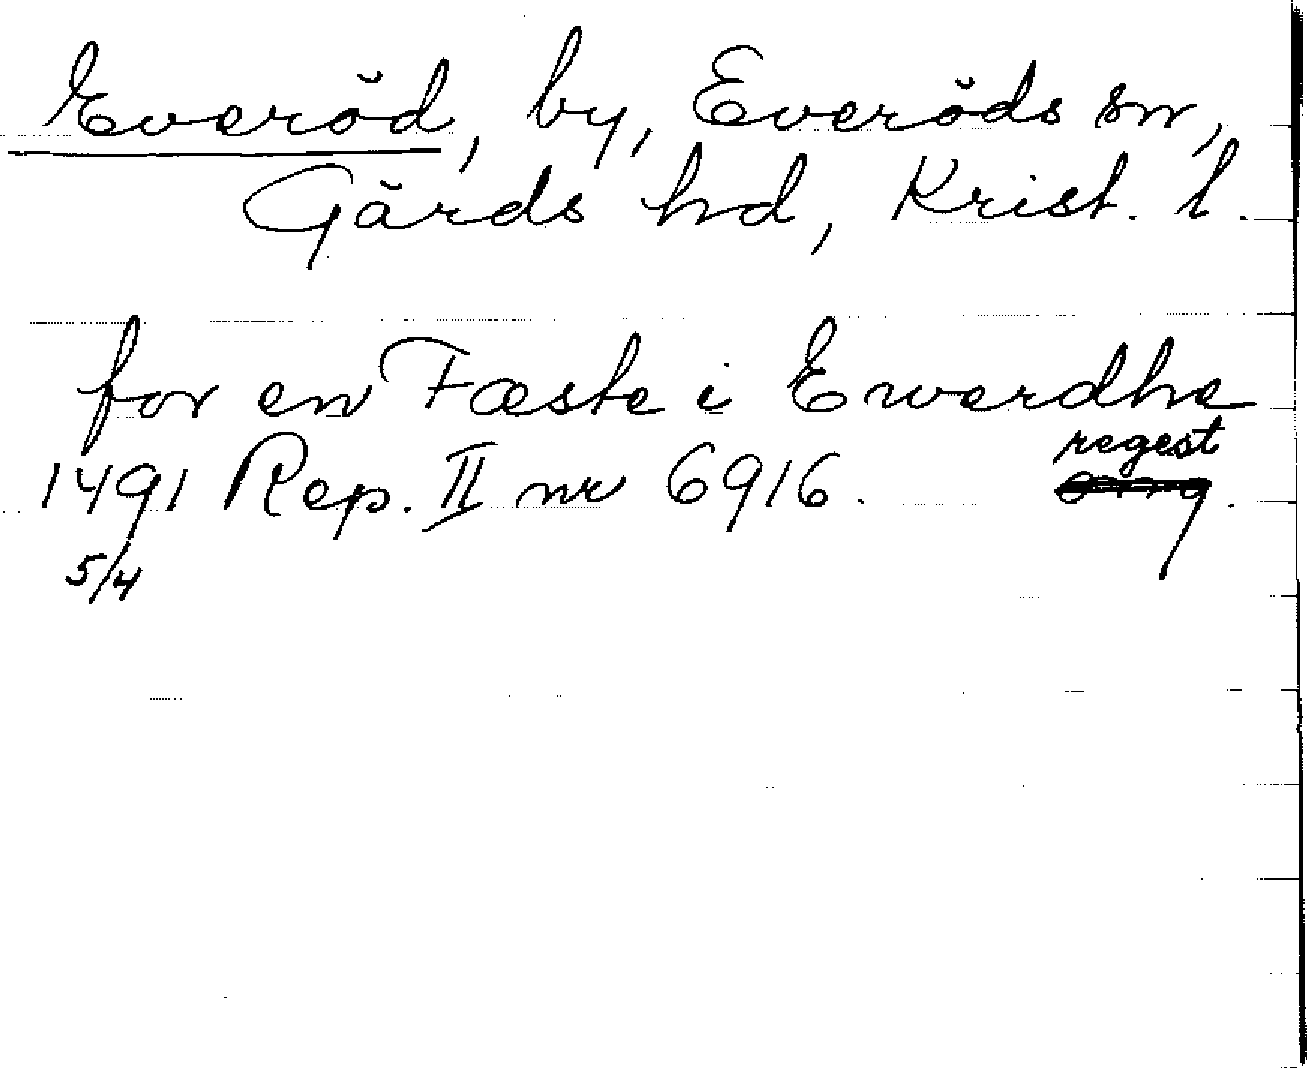 Everöd, by, Everöds sn,
Gärds hd, Krist. l.
for en Fæste i Ewerdhe
regest
1491 Rep. II nr 6916.
5/4